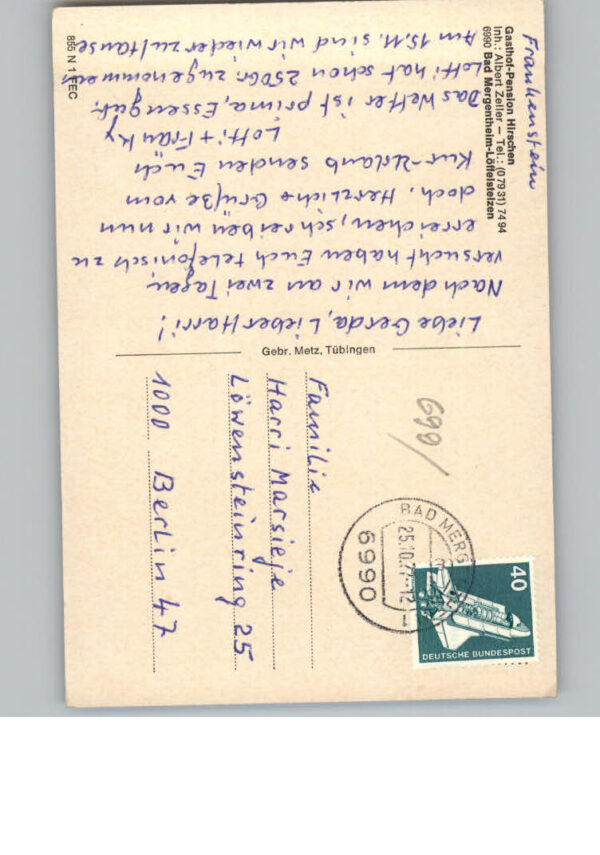 Frankenstein
Gasthof-Pension Hirschen
Inh.: Albert Zeller – Tel.: (07931) 7494
6990 Bad Mergentheim-Löffelstelzen
Liebe Gerda, Lieber Harri!
Nach dem wir an zwei Tagen,
versucht haben Euch telefonisch zu
erreichen, schreiben wir nun
doch. Herzliche Grüße vom
Kur-Urlaub senden Euch
Lotti + Franky
Das Wetter ist prima, Essen gut.
Lotti hat schon 250Gr. zugenommen
Am 15.11. sind wir wieder zu Hause
855 N 1 FEC
Gebr. Metz, Tübingen
699/
BAD MERG
25.10.77-12
6990
40
DEUTSCHE BUNDESPOST
Familie
Harri Marsieje
Löwensteinring 25
1000 Berlin 47